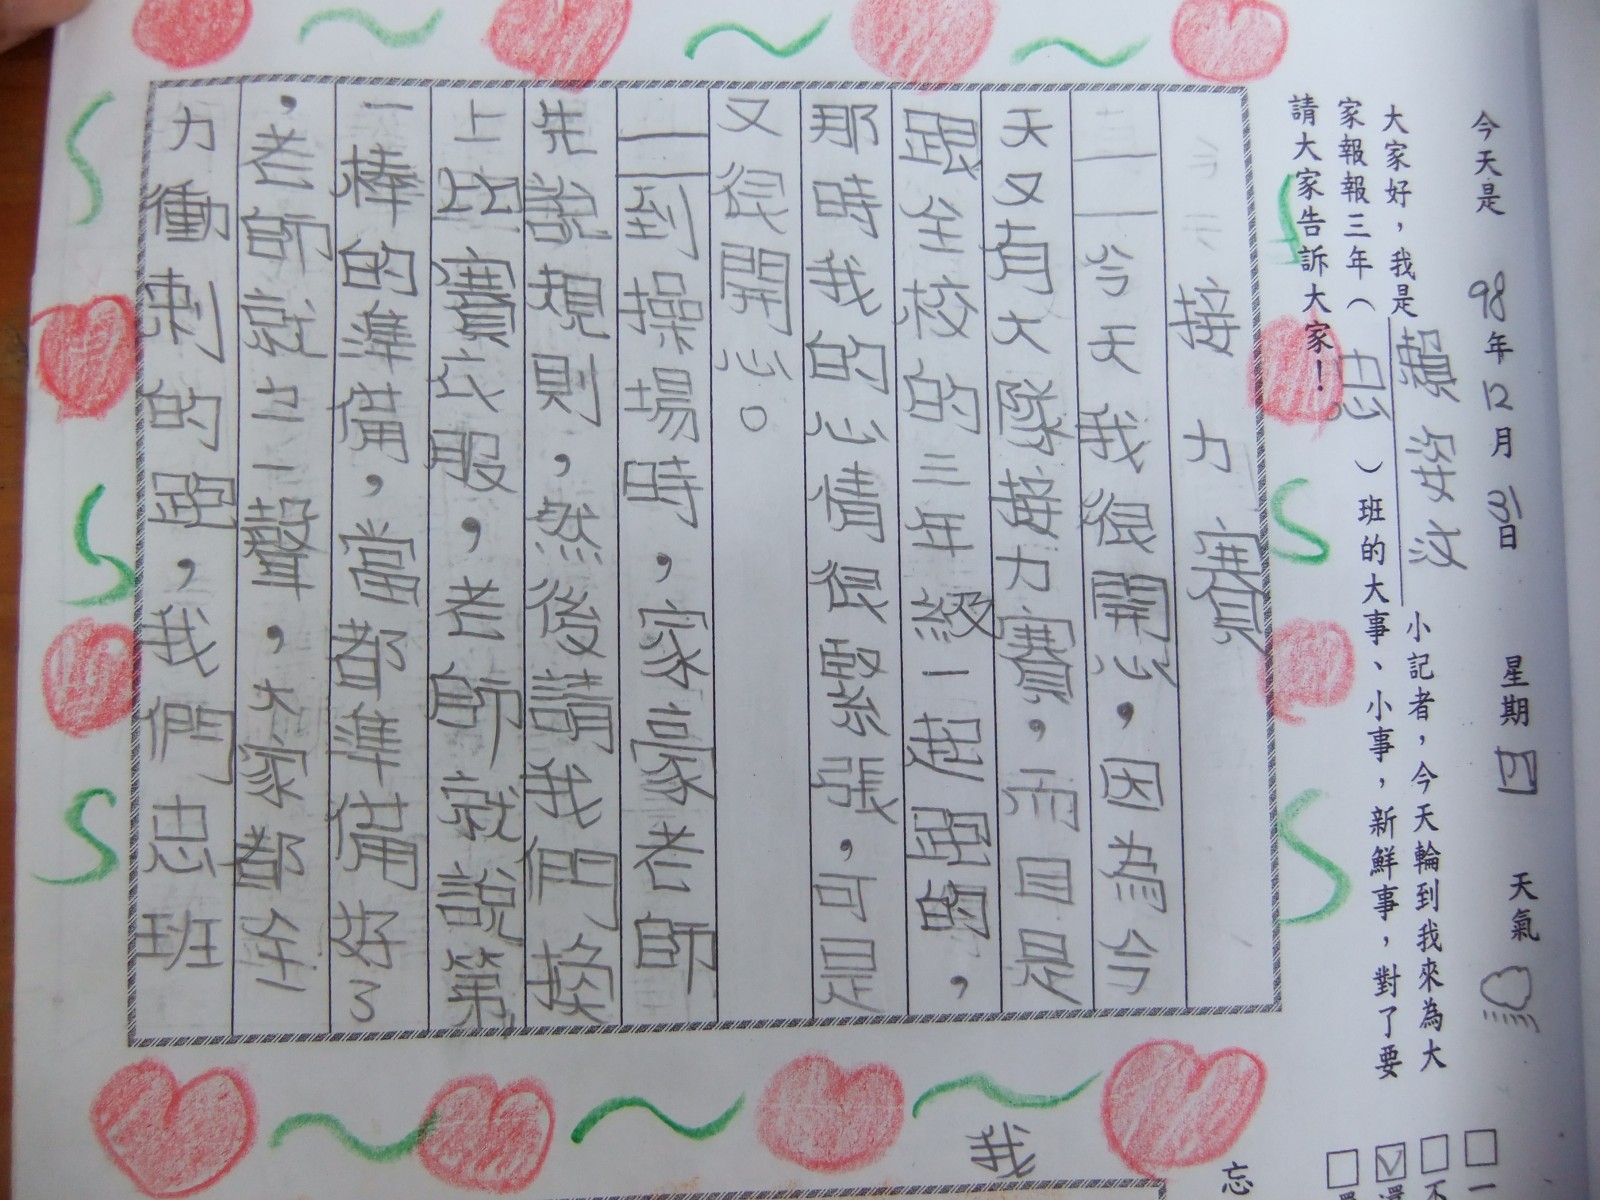 今天是 98年12月31日 星期四 天氣
大家好，我是賴姿汶小記者，今天輪到我來為大
家報報三年（忠）班的大事、小事，新鮮事，對了要
請大家告訴大家！
接力賽
今天我很開心，因為今
天又有大隊接力賽，而且是
跟全校的三年級一起跑的，
那時我的心情很緊張，可是
又很開心。
一到操場時，家豪老師
先說規則，然後請我們換
上比賽衣服，老師就說第
一棒的準備，當都準備好了
，老師就ㄅㄧ一聲，大家都全
力衝刺的跑，我們忠班
我
忘